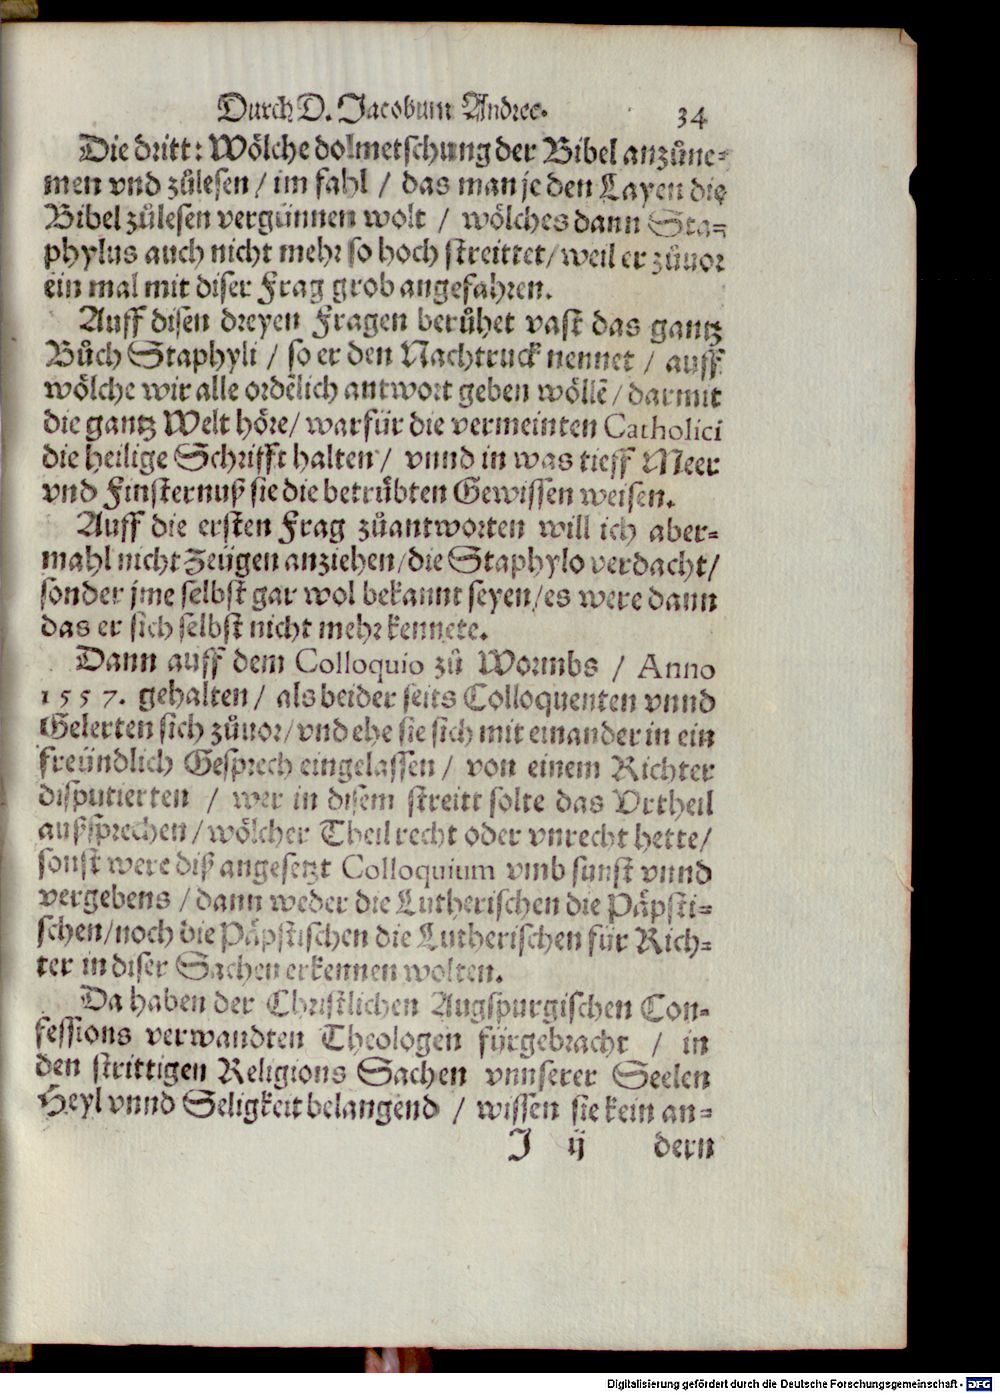 Durch D. Jacobum Andree. 34
Die dritt: Wölche dolmetschung der Bibel anzůne-
men vnd zůlesen / im fahl / das man je den Layen die
Bibel zůlesen vergünnen wolt / wölches dann Sta-
phylus auch nicht mehr so hoch streittet / weil er zůuor
ein mal mit diser Frag grob angefahren.
Auff disen dreyen Fragen berůhet vast das gantz
Bůch Staphyli / so er den Nachtruck nennet / auff
wölche wir alle ordẽlich antwort geben wöllẽ / darmit
die gantz Welt höre / warfür die vermeinten Catholici
die heilige Schrifft halten / vnnd in was tieff Meer
vnd Finsternuß sie die betrübten Gewissen weisen.
Auff die ersten Frag zůantworten will ich aber-
mahl nicht Zeügen anziehen / die Staphylo verdacht /
sonder jme selbst gar wol bekannt seyen / es were dann
das er sich selbst nicht mehr kennete.
Dann auff dem Colloquio zů Wormbs / Anno
1557. gehalten / als beider seits Colloquenten vnnd
Gelerten sich zůuor / vnd ehe sie sich mit einander in ein
freündlich Gesprech eingelassen / von einem Richter
disputierten / wer in disem streitt solte das Vrtheil
außsprechen / wölcher Theil recht oder vnrecht hette /
sonst were diß angesetzt Colloquium vmb sunst vnnd
vergebens / dann weder die Lutherischen die Päpsti-
schen / noch die Päpstischen die Lutherischen für Rich-
ter in diser Sachen erkennen wolten.
Da haben der Christlichen Augspurgischen Con-
fessions verwandten Theologen fürgebracht / in
den strittigen Religions Sachen vnnserer Seelen
Heyl vnnd Seligkeit belangend / wissen sie kein an-
J ij dern
Digitalisierung gefördert durch die Deutsche Forschungsgemeinschaft - DFG